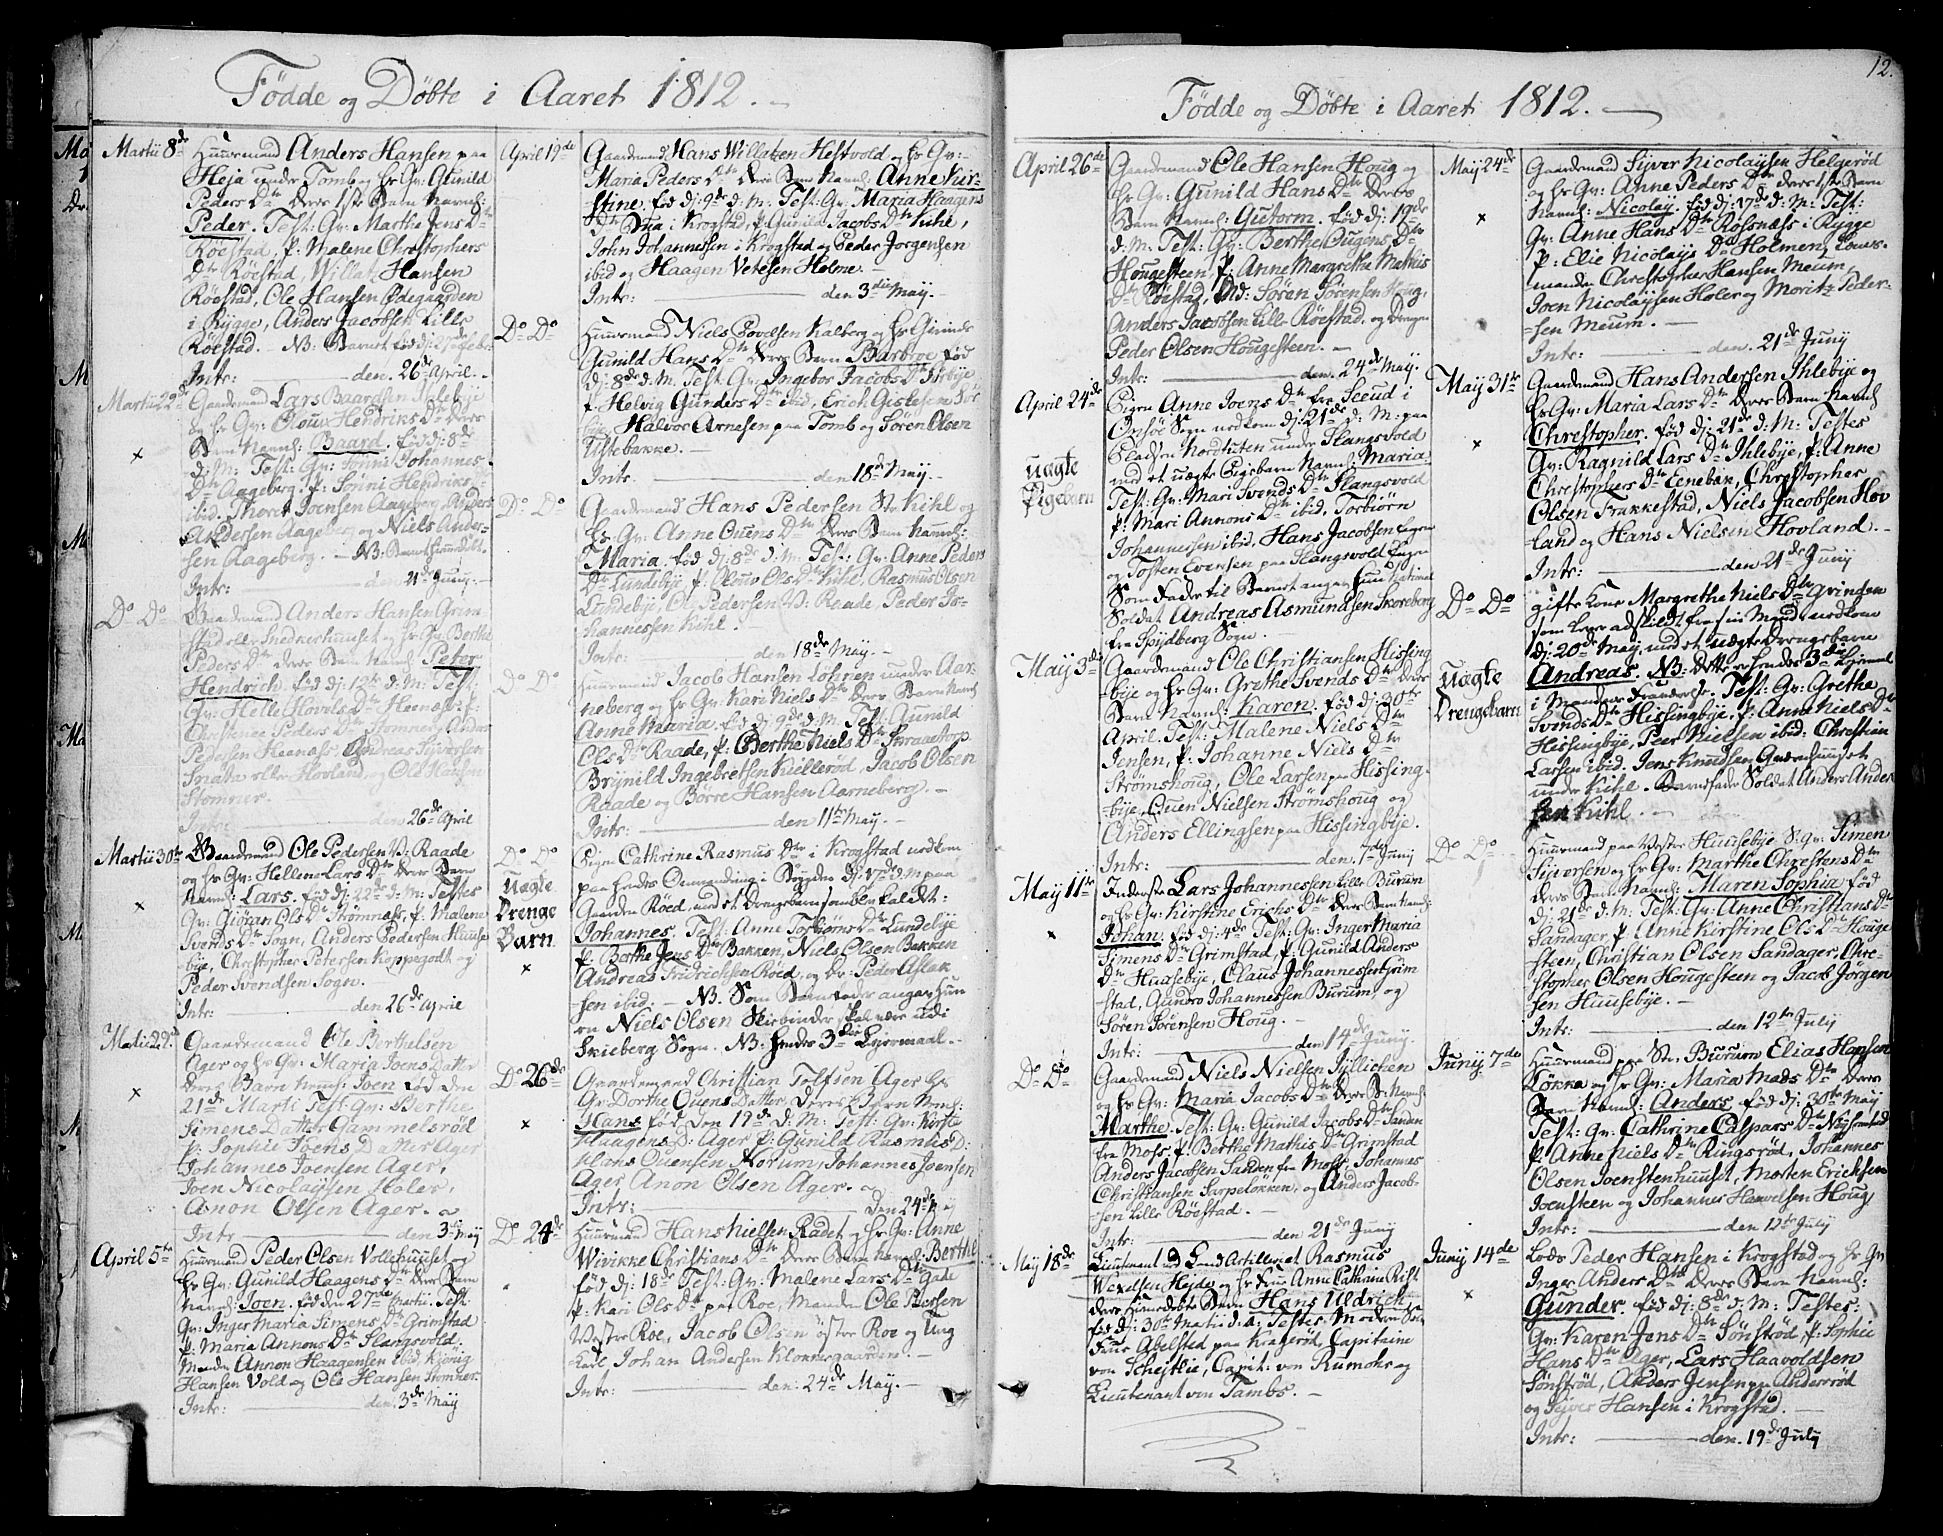 Fødde og Døbte i Aaret 1812.
Martii 8de
Huusmand Anders Hansen paa
Heja under Tomb og hs Gv: Gunild
Peders Dtr deres 1ste Barn Navnl:
Peder. Test: Gv: Marthe Jens Dtr
Røestad, p: Malene Christophers
Dtr Røestad, Willatz Hansen
Røestad, Ole Hansen Ødegaarden
i Rygge, Anders Jacobsen Lille
Røestad. – NB: Barnet fød dj: 27de Febr:
Intr: den 26de April.
Martii 29de
Gaardemand Lars Baardsen Ihlebye
og hs Gv: Olou Hendriks Dtr deres
Barn Navnl: Baard. fød dj: 8de
d: M: Test: Gv: Johannes
Dtr Aageberg. p: Hendriks
ibid. Thore Joensen Aageberg, Anders
Andersen Aageberg og Niels Ander-
sen Aageberg. – NB: Barnet hjemmedøbt.
Intr: den 21de Juny.
Do Do
Gaardemand Anders Hansen Grim-
stad eller Sneckerhuuset og hs Gv: Berthe
Peders Dtr deres Barn Navnl: Peter
Hendrich. fød dj: 12te d: M: Test:
Gv: Helle Hovels Dtr Heenæss p:
Christence Peders Dtr Stomner, Anders
Pedersen Heenæss. Andreas Syversen
eller Hovland, og Ole Hansen
Stomner.
Intr: den 26de April
Martii 30te
Gaardemand Ole Pedersen V: Raade
og hs Gv: Hellene Lars Dtr deres Barn
Navnl: Lars. fød dj: 22de d: M: Testes
Gv: Giøran Ols Dtr Strømnæss, p: Malene
Svends Dtr Sogn, Anders Pedersen Huuse-
bye, Christopher Petersen Keppegodt og
Peder Svendsen Sogn.
Intr: den 26de April
Marti 29de
Gaardemand Ole Berthelsen
Ager og hs Gv: Maria Joens Datter
deres Barn Nvnl: Joen fød den
21de Marti Test: Gv: Berthe
Simens Datter Gammelsrød
p: Sophie Joens Datter Ager
Johannes Joensen Ager,
Joen Nicolaysen Høler,
Anon Olsen Ager.
Intr den 3die May
April 5te
Huusmand Peder Olsen Vollehuuset og
hs Gv: Gunild Haagens Dtr deres Barn
Navnl: Joen. fød den 27de Martii. Test:
Gv: Inger Maria Simens Dtr Grimstad
p: Maria Annons Dtr Slangsvold.
Mænder Annon Haagensen ibid, Kiønig
Hansen Vold og Ole Hansen Stomner.
Intr: den 3de May
April 19de
Gaardemand Hans Willatzen Hestvold og hs Gv:
Maria Peders Dtr deres Barn Navnl: Anne Kir-
stine. fød dj: 9de d: M: Test: Gv: Maria Haagens
Dtr Bua i Krogstad, p: Gunild Jacobs Dtr Kihl,
John Johannessen i Krogstad og Peder Jorgensen
ibid og Haagen Vetesen Holme.
Intr: den 3die May.
Do Do
Huusmand Niels Povelsen Kalberg og hs Qvinde
Gunild Hans Dtr deres Barn Barbroe fød
dj: 8de d: M: Test: Gv: Ingebor Jacobs Dtr
p: Helvig Gunders Dtr ibid, Erich
Halvor Arnesen paa Tomb og Søren Olsen
Ustebakke.
Intr. den 18de May.
Do Do
Gaardemand Hans Pedersen Str Kihl og
hs Gv: Anne Ouens Dtr Deres Barn Navnl:
Maria. fød dj: 8de d: M: Test: Gv: Anne Peders
Dtr Lundebye, p: Olouv Ols Dtr Kihl, Rasmus Olsen
Lundebye, Ole Pedersen V: Raade, Peder Jo-
hannessen Kihl.
Intr: den 18de May.
Do Do
Huusmand Jacob Hansen Løkren under Aar-
neberg og hs Gv: Kari Niels Dtr Deres Barn Navnl
Anne Maaria. fød dj: 9de d: M: Test: Gunild
Ols Dtr Raade, p: Berthe Niels Dtr Skrauetorp
Brynild Ingebretsen Kiellerød, Jacob Olsen
Raade og Børre Hansen Aarneberg.
Intr: den 11te May.
Do Do
Uægte
Drenge
Barn
Pigen Cathrine Rasmus Dtr i Krogstad nedkom
paa hendes Omvanding i Bøygden dj: 17de d: M paa
Gaarden Røed, med et Drengebarn som blev kaldet:
Johannes. Test: Anne Torbiørns Dtr Lundebye
p: Berthe Jens Dtr Bakken, Niels Olsen Bakken
Andreas Fridrichsen Røed, og dr: Peder Aslak-
sen ibid. – NB. Som Barnefader angav hun
en Niels Olsen Skibinder, skal være udi
Skieberg Sogn. NB. hendes 3die Leiermaal.
Do 26de
Gaardemand Christian Tolfsen Ager hs
Gv: Dorthe Ouens Datter, deres Barn Nvnl:
Hans fød den 19de d: M: Test: Gv: Kirstie
Haagens D: Ager p: Gunild Rasmus D:
Hans Ouensen, Horum, Johannes Joensen
Ager, Anon Olsen Ager.
Intr: Den 24de May
Do 24de
Huusmand Hans Nielsen Rødet og hs Gv: Anne
Wivikke Christians Dtr Deres Barn Navnl: Berthe
fød dj: 18de Test: Gv: Malene Lars Dtr Gade
p: Kari Ols Dtr paa Roe, Manden Ole Persen
Vestre Roe, Jacob Olsen østre Roe og Ung
Karl Johan Andersen Klokkergaarden.
Intr: den 24de May.
12.
Fødde og Døbte i Aaret 1812.
April 26de
Gaardemand Ole Hansen Houg og
hs Gv: Gunild Hans Dtr Deres
Barn Navnl: Gutorm. fød dj: 19de
d: M: Test: Gv: Berthe Ougens Dtr
Hougesteen, p: Anne Margrethe Mathis
Dtr Røestad, Md: Søren Sørensen Houg,
Anders Jacobsen Lille Røestad, og Drengen
Peder Olsen Hougesteen.
Intr: den 24de May.
April 24de
uægte
Pigebarn
Pigen Anne Joens Dtr fra Seeud i
Onsøe Sogn nedkom dj: 21de d: M: paa
Pladsen Nordtuten under Slangsvold
med et uægte Pigebarn Navnl: Maria
Test: Gv: Mari Svends Dtr Slangsvold
p: Mari Annons Dtr ibid, Torbiørn
Johannessen ibid. Hans Jacobsen
og Tosten Evensen paa Slangsvold
Som Fader til Barnet angav hun National
Soldat Andreas Asmundsen Skoreberg
fra Spydberg Sogn.
May 3die
Gaardemand Ole Christiansen Hissing-
bye og hs Gv: Grethe Svends Dtr deres
Barn Navnl: Karen. fød dj: 30te
April. Test: Malene Niels Dtr
Jensen, p: Johanne Niels Dtr
Strømshoug, Ole Larsen paa Hissing-
bye, Ouen Nielsen Strømshoug og
Anders Ellingsen paa Hissingbye.
Intr: den 7de Juny
May 11te
Federste Lars Johannessen Lille Burum
og hs Gv: Kirstine Erichs Dtr deres Barn Navnl:
Johan. fød dj: 4de Test: Gv: Inger Maria
Simens Dtr Grimstad, p: Gunild Anders
Dtr Huusebye, Claus Johannessen Grim-
stad, Gundro Johannessen Burum, og
Søren Sørensen Houg.
Intr: den 14de Juny.
Do Do
Gaardemand Niels Nielsen Jyllichen
og hs Gv: Maria Jacobs Dtr Deres B: Navnl:
Marthe. Test: Gv: Gunild Jacobs Dtr Sanden
fra Moss, p: Berthe Mathis Dtr Grimstad
Anders Jacobsen Sanden fra Moss, Johannes
Christiansen Sarpeløkken, og Anders Jacob-
sen Lille Røestad.
Intr: den 21de Juny
May 18de
Lieutenant ved Land Artilleriet Rasmus
Wexelsen Hejde og hs Frue Anne Cathrine Rist
deres hiemedøbte Barn Hans Uldrich
fød dj: 30te Martii d. A. Testes Moderen Selv
Frue Abelsted paa Kragerød, Capitaine
von Scheitlie, Capit: von Rumohr og
Lieutenant von Tambs.
May 24de
Gaardemand Syver Nicolaysen Helgerød
og hs Gv: Anne Peders Dtr deres 1ste Barn
Navnl: Nicolay. fød dj: 17de d: M: Test:
Gv: Anne Hans Dtr Rosnæss i Rygge
p: Elie Nicolays Dtr Holmen,
mænder Christopher Hansen Meum,
Joen Nicolaysen Høler og Moritz Peder-
sen Meum.
Intr: den 21de Juny
May 31te
Gaardemand Hans Andersen Ihlebye og
hs Gv: Maria Lars Dtr deres Barn Navnl
Christopher. fød dj: 21de d: M: Testes
Gv: Ragnild Lars Dtr Ihlebye, p: Anne
Christophers Dtr Eeneban, Christopher
Olsen Frakkestad, Niels Jacobsen Hov-
land og Hans Nielsen Hovland.
Intr: den 21de Juny
Do Do
Uægte
Drengebarn
gifte Kone Margrethe Niels Dtr Grinden
som lever adskildt fra sin Mand nedkom
dj: 20de May, med et uægte Drengebarn
Andreas. NB: dette er hendes 3die Leiermaal
i Mandens Fraværelse. Test: Gv: Grethe
Svends Dtr Hissingbye, p: Anne Niels Dtr
Hissingbye, Peer Nielsen ibid: Christian
Larsen ibid. Jens Knudsen Qværnhuuset
under Kihl. Barnefader Soldat Anders Ander-
sen Kihl.
Do Do
Huusmand paa Vester Huusebye S: gv: Simen
Syversen og hs Gv: Marthe Christens Dtr
deres Barn Navnl: Maren Sophia fød
dj: 21de d: M: Test: Gv: Anne Christians Dtr
Sandager, p: Anne Kirstine Ols Dtr Houge-
steen, Christian Olsen Sandager, Chri-
stopher Olsen Hougesteen og Jacob Jørgen-
sen Huusebye.
Intr: den 12te July
Juny 7de
Huusmand paa Str. Burum Elias Hansen
Løkka og hs Gv: Maria Mads Dtr deres
Barn Navnl: Anders. fød dj: 30te May
Test: Gv: Cathrine Caspars Dtr
p: Anne Niels Dtr Ringsrød, Johannes
Olsen Joenstenhuuset, Morten Erichsen
Joensteen og Johannes Haavelsen Houg
Intr: den 12te July
Juny 14de
Lods Peder Hansen i Krogstad og hs Gv
Inger Anders Dtr deres Barn Navnl:
Gunder. fød dj: 8de d: M: Testes:
Gv: Karen Jens Dtr Sønstrød, p: Sophie
Hans Dtr Ager, Lars Haavoldsen
Sønstrød, Anders Jensen paa Andersrød
og Syver Hansen i Krogstad.
Intr: den 19de July